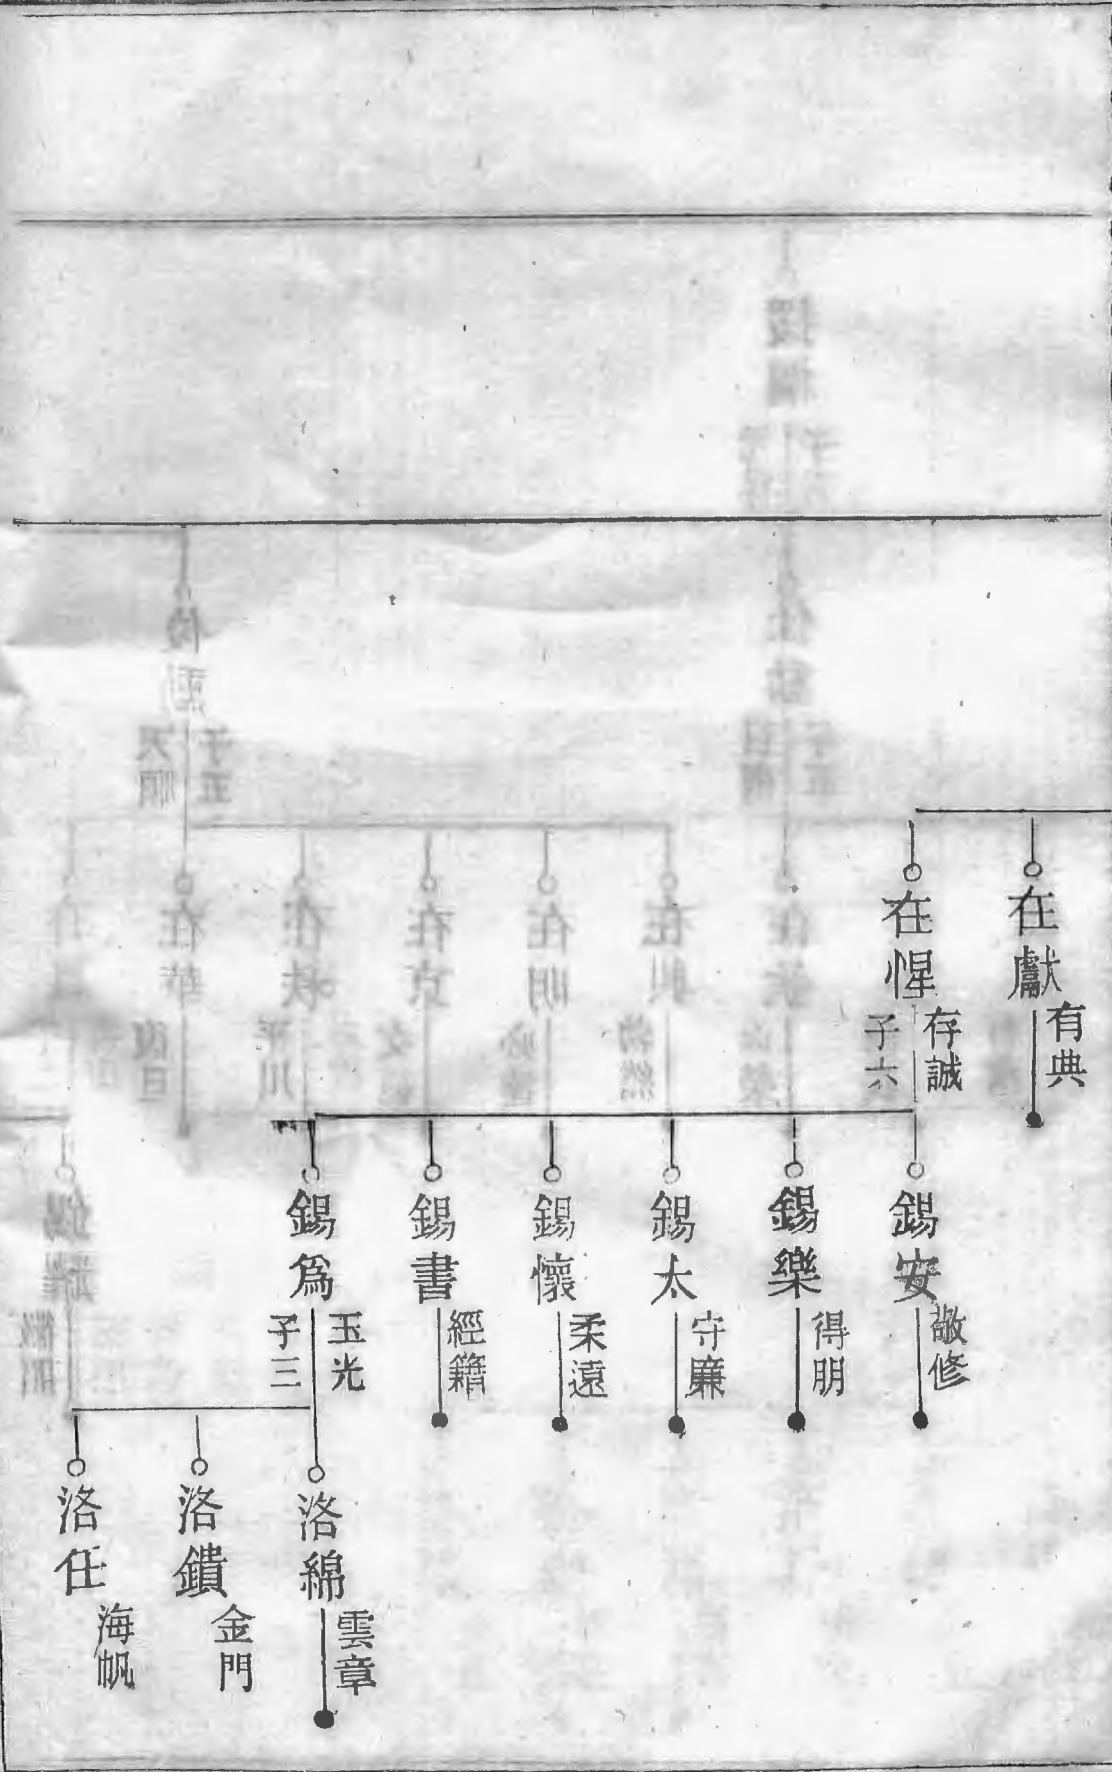 在獻
有典
在惺
存誠
子六
錫安
敬修
錫樂
得朋
錫太
守廉
錫懷
柔遠
錫書
經籍
錫爲
玉光
子三
洛綿
雲章
洛鐀
金門
洛任
海帆